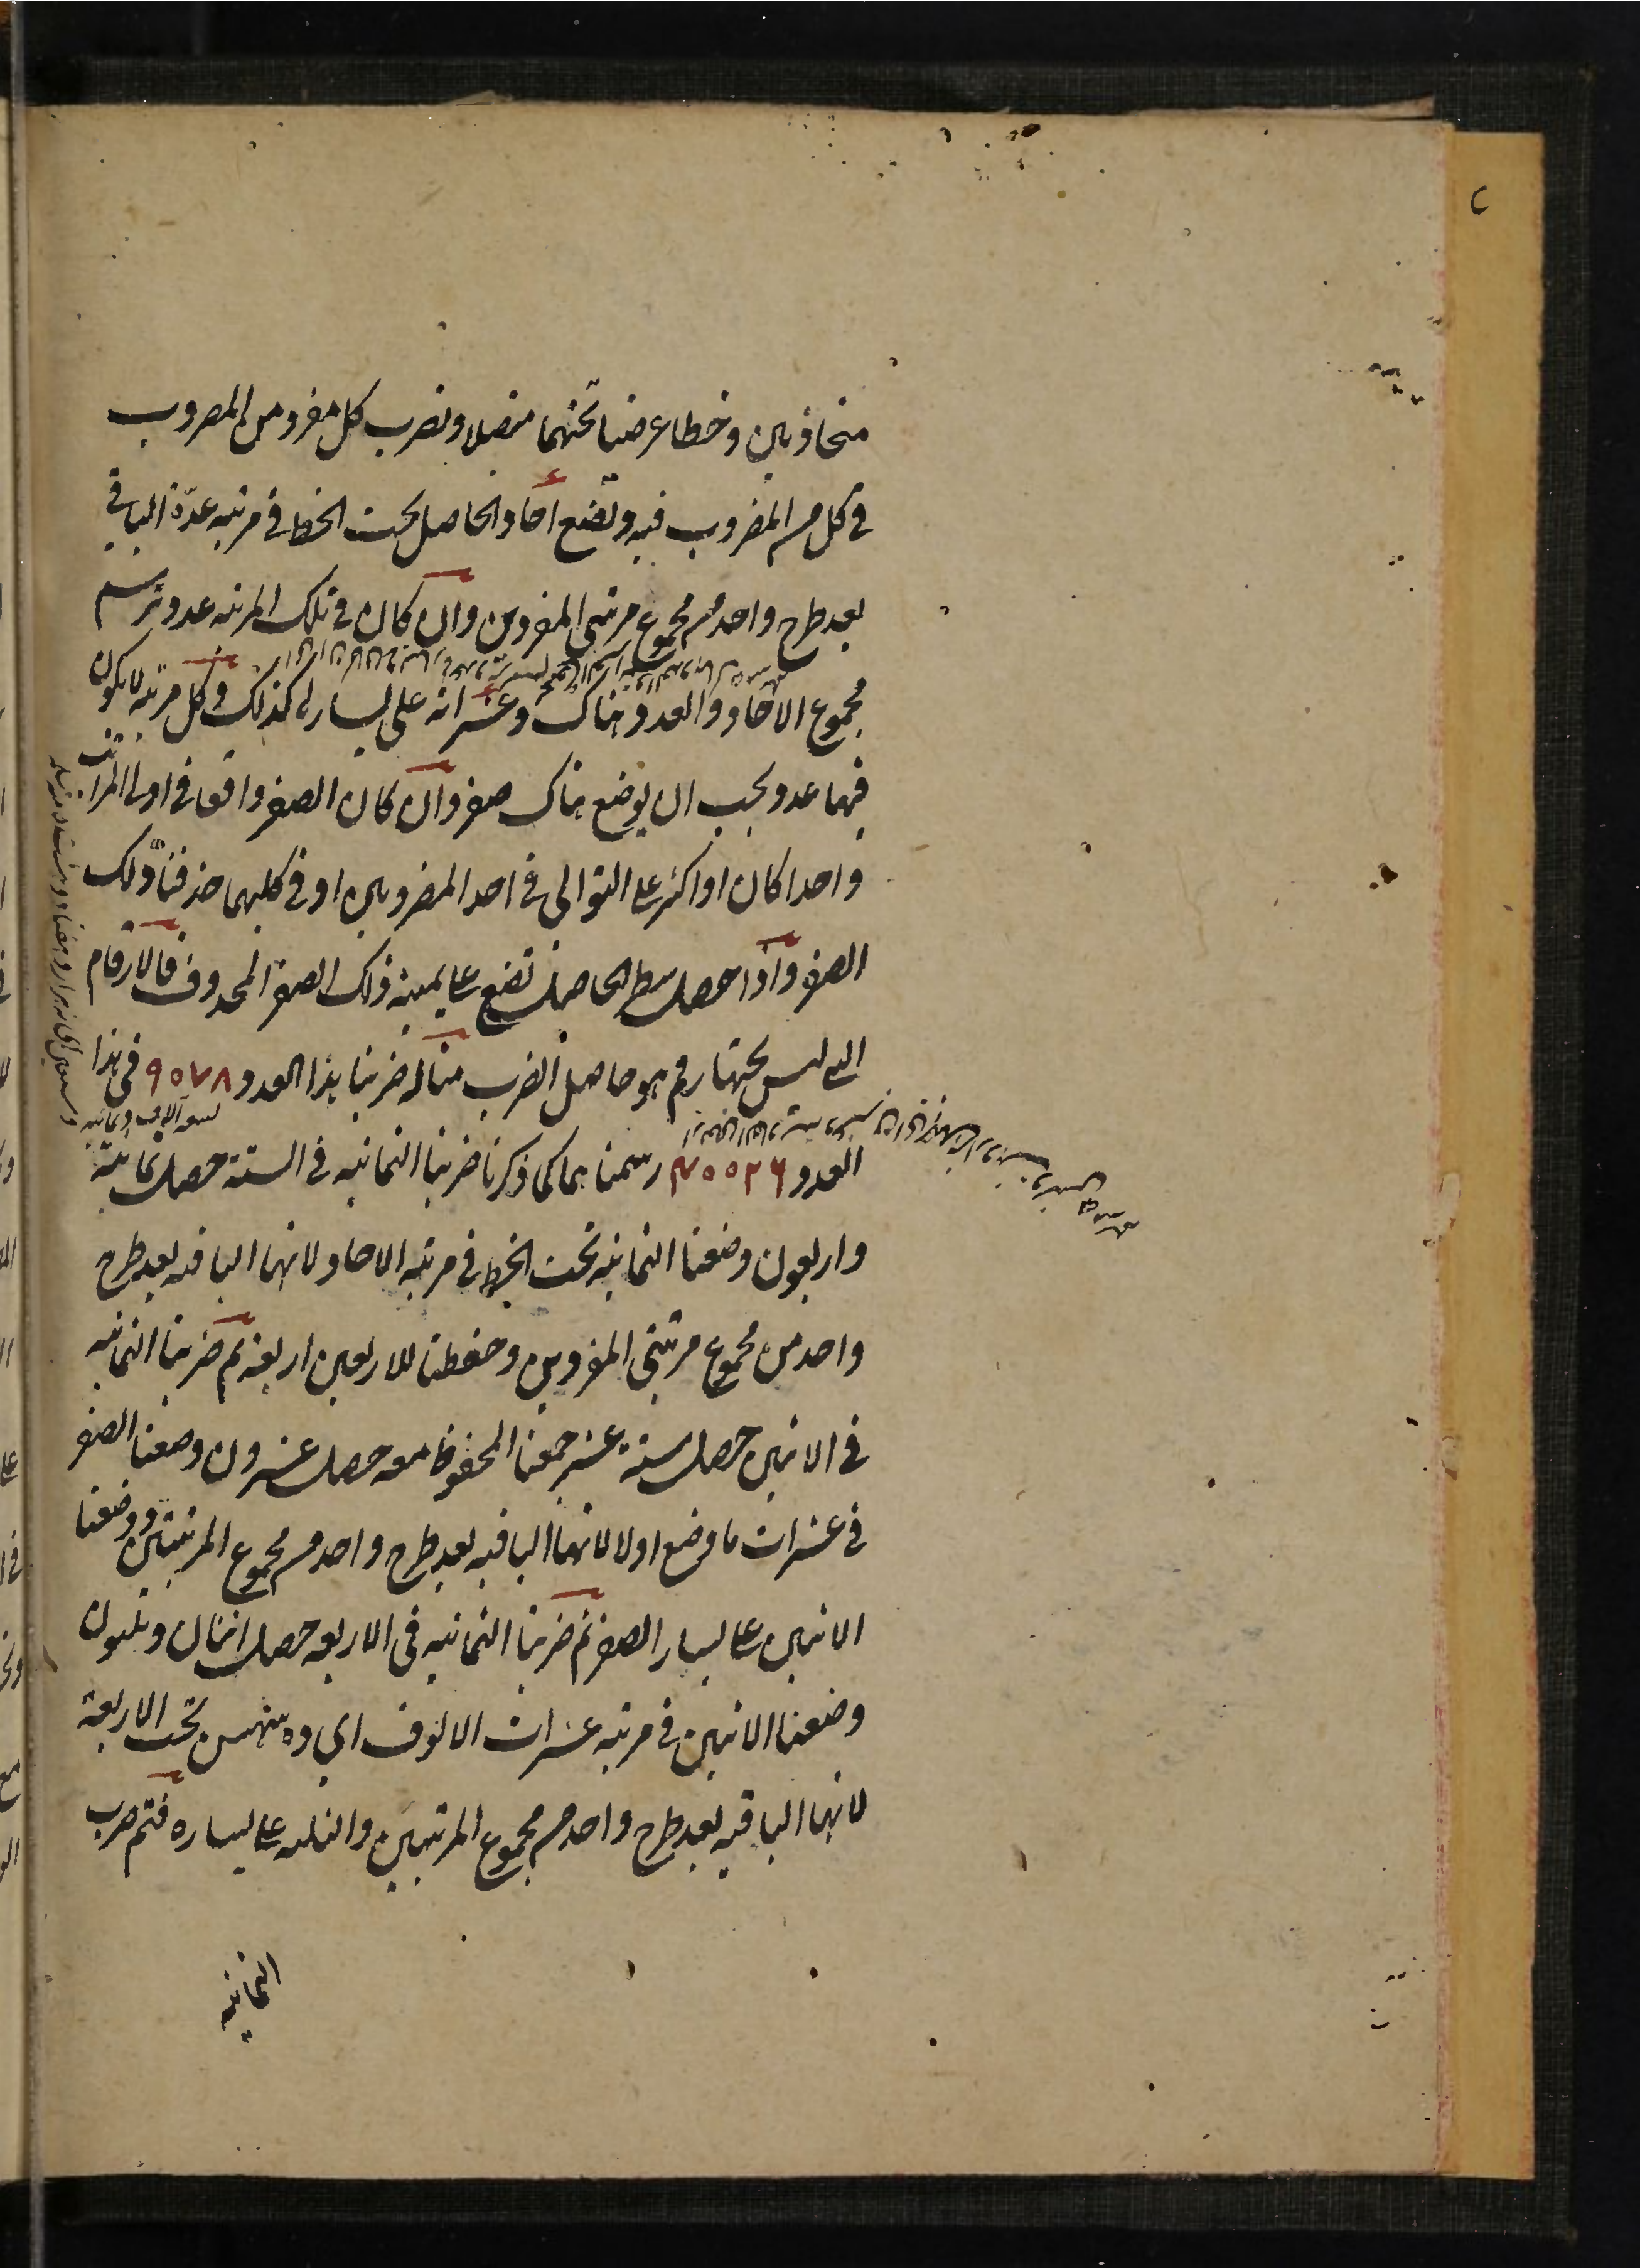 متحاذيين وخطا عرضيا تحتهما متصلا ونضرب كل مفرد من المضروب
في كل من المضروب فيه ونضع آحاد الحاصل تحت الخط في مرتبة عدة الباقي
بعد طرح واحد من مجموع مرتبتي المفردين وان كان في تلك المرتبة عدد نرسم
مجموع الآحاد والعدد هناك وعشراته على يساره كذلك وكل مرتبة لا يكون
فيها عدد يجب ان يوضع هناك صفر وان كان الصفر واقعا في اول المراتب
واحدا كان او اكثر على التوالي في احد المضروبين او في كليهما حذفنا ذلك
الصفر واذا حصل سطر الحاصل نضع على يمينه ذلك الصفر المحذوف فالارقام
التي ليس تحتها رقم هو حاصل الضرب مثاله ضربنا هذا العدد ٩٥٧٨ في هذا
تسعة آلاف وثمانية
العدد ٧٥٥٢٦ رسمنا هما كما ذكرنا ضربنا الثمانية في الستة حصل ثمانية
واربعون وضعنا الثمانية تحت الخط في مرتبة الاحاد لانها الباقية بعد طرح
واحد من مجموع مرتبتي المفردين وحفظنا للاربعين اربعة ثم ضربنا الثمانية
في الاثنين حصل ستة عشر جمعنا المحفوظ معه حصل عشرون وضعنا الصفر
في عشرات ما وضع اولا لانها الباقية بعد طرح واحد من مجموع المرتبتين ووضعنا
الاثنين على يسار الصفر ثم ضربنا الثمانية في الاربعة حصل اثنان وثلثون
وضعنا الاثنين في مرتبة عشرات الالوف اي تحت الاربعة
لانها الباقية بعد طرح واحد من مجموع المرتبتين والثلثة على يساره فتم ضرب
الثمانية